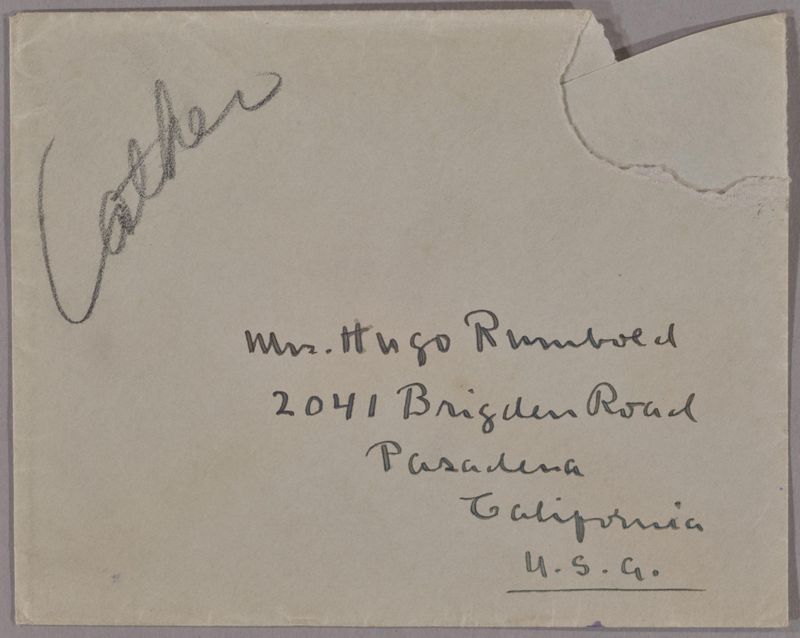 Cather
Mrs. Hugo Rumbold
2041 Brigden Road
Pasadena
California
U.S.A.